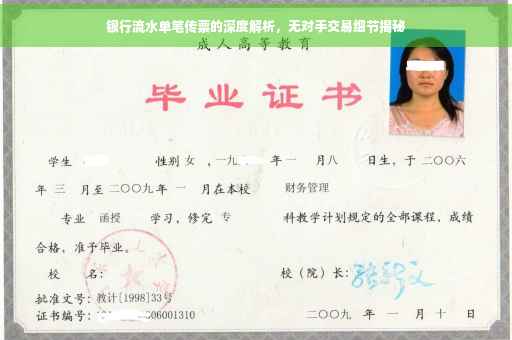 银行流水单笔传票的深度解析，无对手交易细节揭秘
成人高等教育
毕业证书
学生 性别 女 ，一九 年一 月八 日生，于二〇〇六
年 三 月至二〇〇九年 一 月在本校 财务管理
专业 函授 学习，修完 专 科教学计划规定的全部课程，成绩
合格，准予毕业。
校 名： 校（院）长：
批准文号：教计[1998]33号
证书编号： 006001310 二〇〇九 年 一 月 十 日